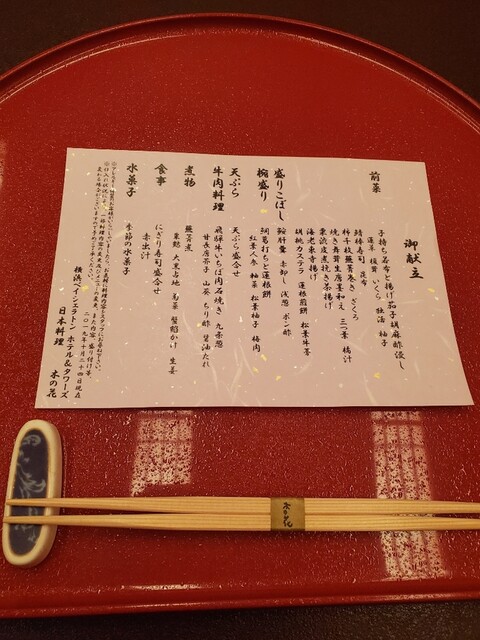 御献立
前菜
子持ち若布と揚げ茄子胡麻酢浸し
蓮草 桜茸 いくら 独活 柚子
鯖棒寿司 昆布
柿千枚蕪菁巻き ざくろ
焼き舞茸生唐墨和え 三つ葉 橘汁
栗渋皮煮挽き茶揚げ
海老東寺揚げ
胡桃カステラ 蓮根煎餅 松葉牛蒡
盛りこぼし
鮟肝羹 赤卸し 浅葱 ポン酢
椀盛り
網笠竹と蓮根餅
紅葉人参 軸菜 松葉柚子 梅肉
天ぷら
天ぷら盛合せ
牛肉料理
飛騨牛いちぼ肉石焼き 九条葱
甘長唐辛子 山葵 ちり酢 醤油たれ
煮物
蕪菁煮
粟麩 大黒占地 馬菜 蟹餡かけ 生姜
食事
にぎり寿司盛合せ
赤出汁
水菓子
季節の水菓子
横浜ベイシェラトン ホテル&タワーズ
日本料理 木の花
木の花